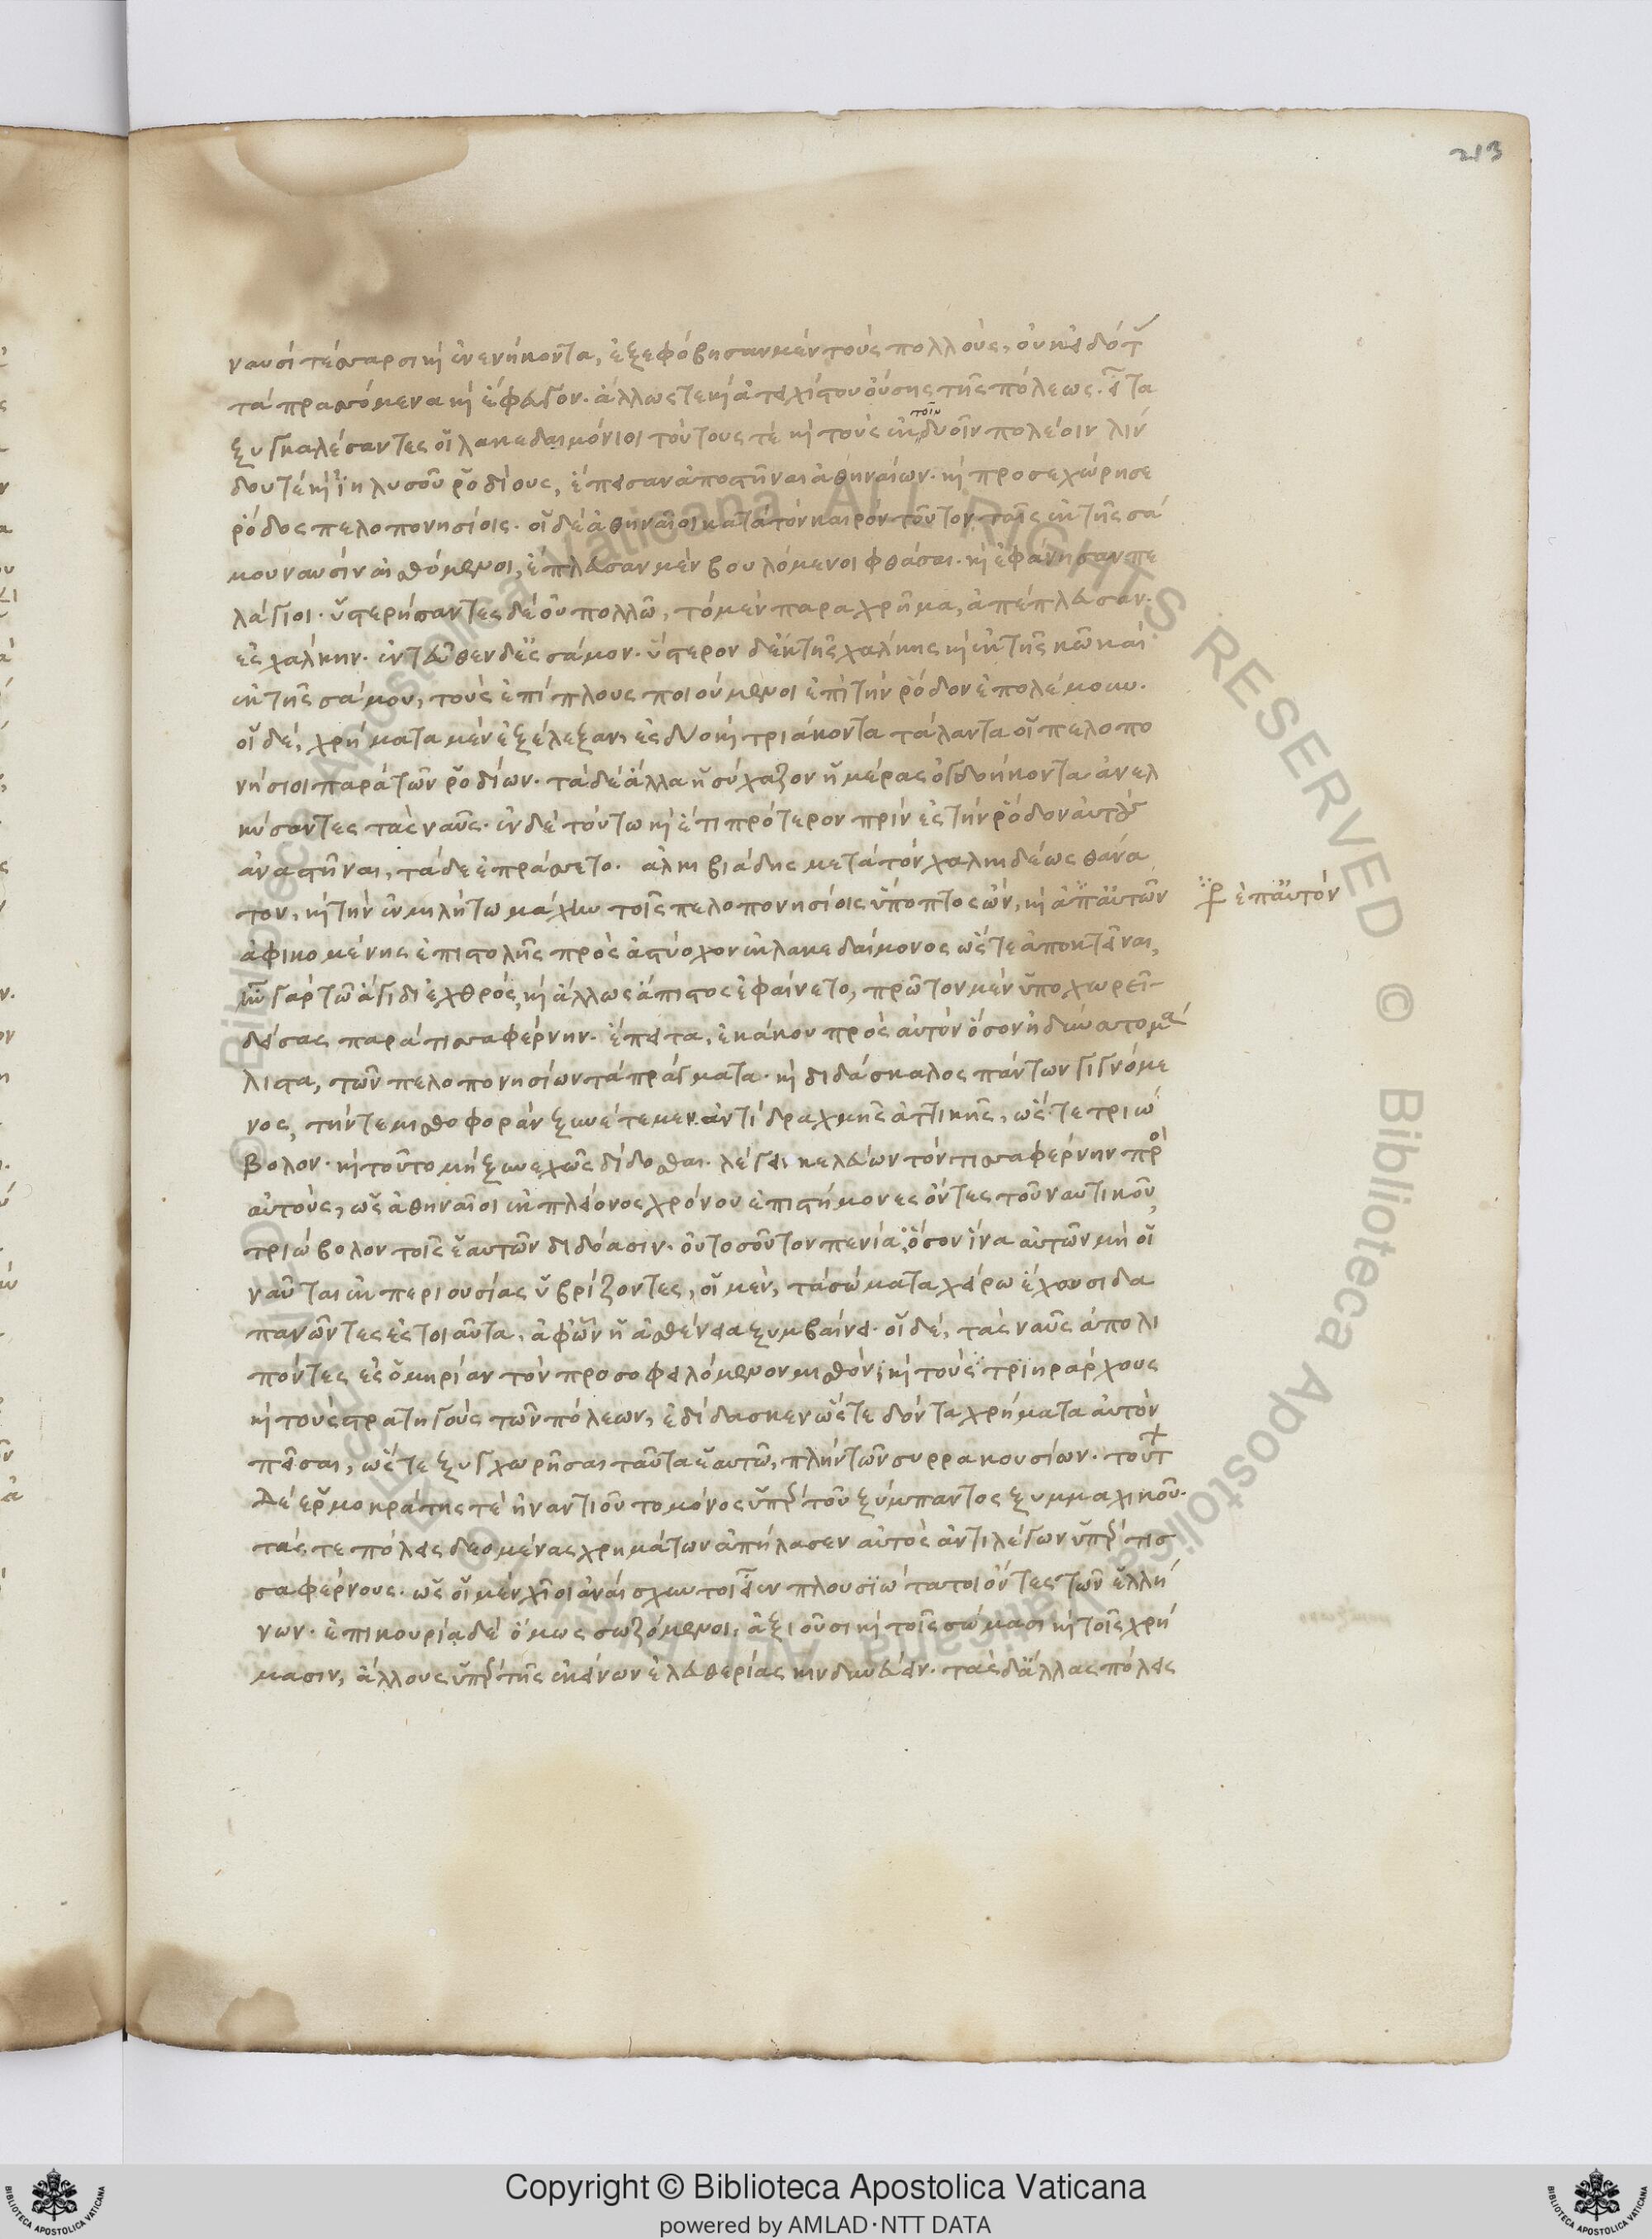 213
ναυσὶ τέσσαρσι καὶ ἐνενήκοντα, ἐξεφόβησαν μὲν τοὺς πολλούς, οὐκ εἰδότας
τὰ πρασσόμενα καὶ ἔφευγον. ἄλλως τε καὶ ἀτειχίστου οὔσης τῆς πόλεως. εἶτα
ξυγκαλέσαντες οἱ λακεδαιμόνιοι τούτους τὲ καὶ τοὺς ἐκ τοῖν δυοῖν πολέοιν λίν
δου τὲ καὶ ἰηλυσοῦ ῥοδίους, ἔπεισαν ἀποστῆναι ἀθηναίων. καὶ προσεχώρησε
ῥόδος πελοπονησίοις. οἱ δὲ ἀθηναῖοι κατὰ τὸν καιρὸν τοῦτον ταῖς ἐκ τῆς σά
μου ναυσὶν αἰσθόμενοι, ἔπλευσαν μὲν βουλόμενοι φθάσαι. καὶ ἐφάνησαν πε
λάγιοι. ὑστερήσαντες δὲ οὐ πολλῶ, τὸ μὲν παραχρῆμα, ἀπέπλευσαν.
ἐς χάλκην. ἐντεῦθεν δ' ἐς σάμον. ὕστερον δ' ἐκ τῆς χάλκης καὶ ἐκ τῆς κῶ καὶ
ἐκ τῆς σάμου, τοὺς ἐπίπλους ποιούμενοι ἐπὶ τὴν ῥόδον ἐπολέμουν.
οἱ δὲ, χρήματα μὲν ἐξέλεξαν, ἐς δύο καὶ τριάκοντα τάλαντα οἱ πελοπο
νήσιοι παρὰ τῶν ῥοδίων. τὰ δὲ ἄλλα ἡσύχαζον ἡμέρας ὀγδοήκοντα ἀνελ
κύσαντες τὰς ναῦς. ἐν δὲ τούτω καὶ ἔτι πρότερον πρὶν ἐς τὴν ῥόδον αὐτοὺς
ἀναστῆναι, τάδε ἐπράσσετο. ἀλκιβιάδης μετὰ τὸν χαλκιδέως θάνα
τον, καὶ τὴν ἐν μιλήτω μάχην τοῖς πελοπονησίοις ὕποπτος ὢν, καὶ ἀπ' αὐτῶν
ἐπ' αὐτὸν
ἀφικομένης ἐπιστολῆς πρὸς ἀστύοχον ἐκ λακεδαίμονος ὥστε ἀποκτεῖναι,
ἦν γὰρ τῶ ἄγιδι ἐχθρός, καὶ ἄλλως ἄπιστος ἐφαίνετο, πρῶτον μὲν ὑποχωρεῖ
δείσας παρὰ τισσαφέρνην. ἔπειτα, ἐκάκου πρὸς αὐτὸν ὅσον ἠδύνατο μά
λιστα, τῶν πελοπονησίων τὰ πράγματα. καὶ διδάσκαλος πάντων γιγνόμε
νος, τήν τε μισθοφορὰν ξυνέτεμεν ἀντὶ δραχμῆς ἀττικῆς, ὥστε τριώ
βολον. καὶ τοῦτο μὴ ξυνεχῶς δίδοσθαι. λέγειν κελεύων τὸν τισσαφέρνην πρὸς
αὐτοὺς, ὡς ἀθηναῖοι ἐκ πλείονος χρόνου ἐπιστήμονες ὄντες τοῦ ναυτικοῦ,
τριώβολον τοῖς ἑαυτῶν διδόασιν. οὐ τοσοῦτον πενία, ὅσον ἵνα αὐτῶν μὴ οἱ
ναῦται ἐκ περιουσίας ὑβρίζοντες, οἱ μὲν, τὰ σώματα χείρω ἔχουσι δα
πανῶντες ἐς τοιαῦτα, ἀφ' ὧν ἡ ἀσθένεια ξυμβαίνει. οἱ δὲ, τὰς ναῦς ἀπολι
πόντες ἐς ὁμηρίαν τὸν προσοφειλόμενον μισθόν, καὶ τοὺς τριηράρχους
καὶ τοὺς στρατηγοὺς τῶν πόλεων, ἐδίδασκεν ὥστε δόντα χρήματα αὐτὸν
πεῖσαι, ὥστε ξυγχωρῆσαι ταῦτα ἑαυτῶ, πλὴν τῶν συρρακουσίων. τούτων
δὲ ἑρμοκράτης τὲ ἠναντιοῦτο μόνος ὑπὲρ τοῦ ξύμπαντος ξυμμαχικοῦ.
τάς τε πόλεις δεομένας χρημάτων ἀπήλασεν αὐτὸς ἀντιλέγων ὑπὲρ τισ
σαφέρνους. ὡς οἱ μὲν χῖοι ἀναίσχυντοι εἶεν πλουσιώτατοι ὄντες τῶν ἑλλή
νων. ἐπικουρία δὲ ὅμως σωζόμενοι, ἀξιοῦσι καὶ τοῖς σώμασι καὶ τοῖς χρή
μασιν, ἄλλους ὑπὲρ τῆς ἐκείνων ἐλευθερίας κινδυνεύειν. τὰς δ' ἄλλας πόλεις
Copyright © Biblioteca Apostolica Vaticana
powered by AMLAD·NTT DATA